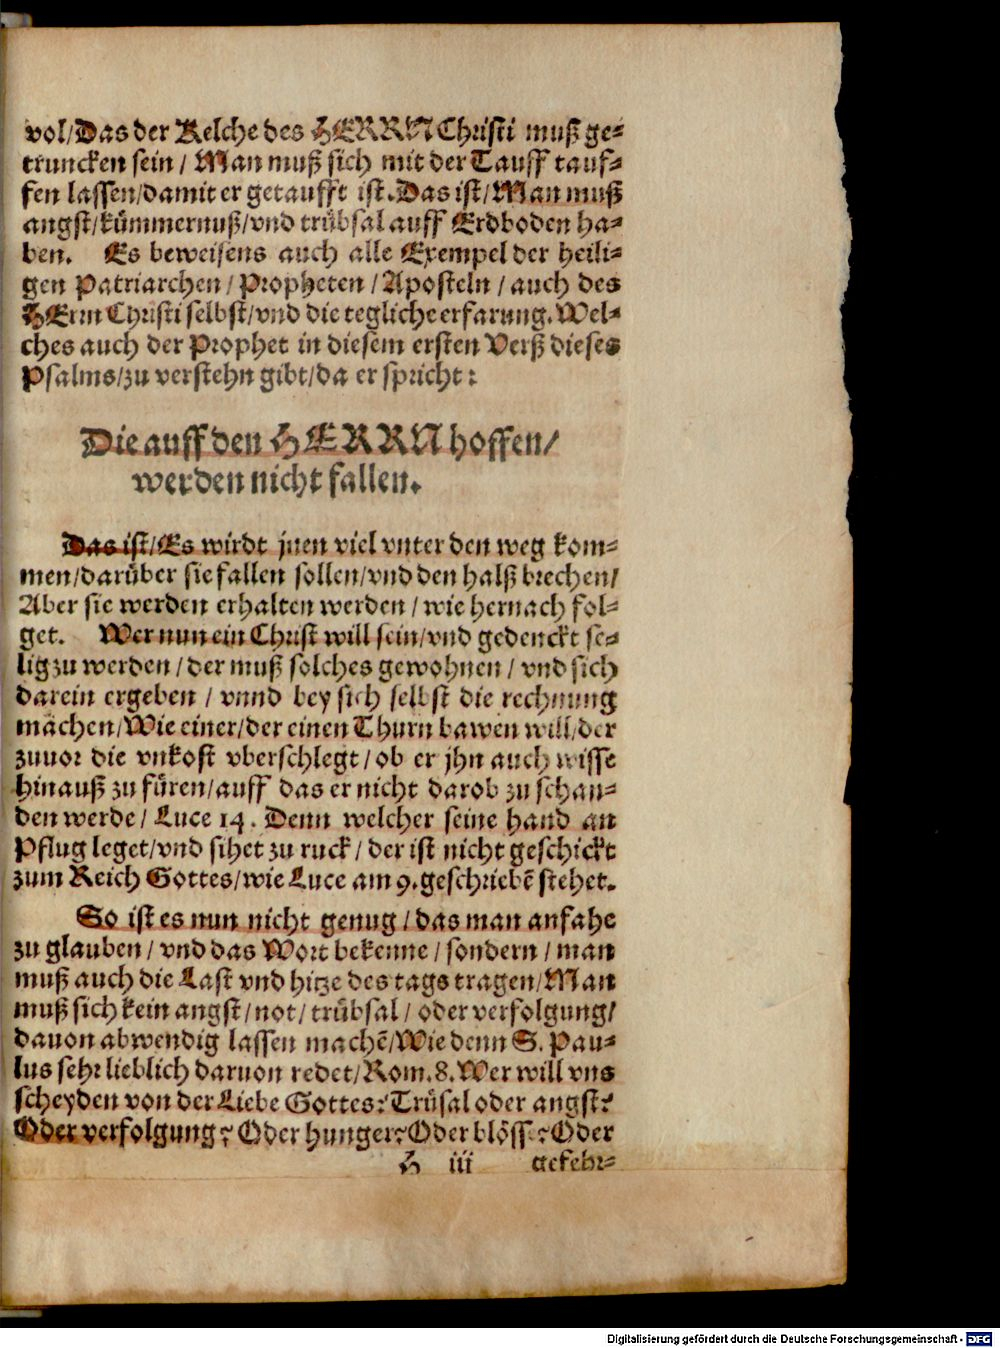 vol/Das der Kelche des HERRN Christi muß ge-
truncken sein / Man muß sich mit der Tauff tauf-
fen lassen/damit er getaufft ist. Das ist/Man muß
angst/kümmernuß/vnd trübsal auff Erdboden ha-
ben. Es beweisens auch alle Exempel der heili-
gen Patriarchen / Propheten / Aposteln / auch des
HErrn Christi selbst/vnd die tegliche erfarung. Wel-
ches auch der Prophet in diesem ersten Verß dieses
Psalms/zu verstehn gibt/da er spricht:
Die auff den HERRN hoffen/
werden nicht fallen.
Das ist/Es wirdt jnen viel vnter den weg kom-
men/darüber sie fallen sollen/vnd den halß brechen/
Aber sie werden erhalten werden / wie hernach fol-
get. Wer nun ein Christ will sein/vnd gedenckt se-
lig zu werden / der muß solches gewohnen / vnd sich
darein ergeben / vnnd bey sich selbst die rechnung
machen/Wie einer/der einen Thurn bawen will/der
zuuor die vnkost vberschlegt / ob er jhn auch wisse
hinauß zu füren/auff das er nicht darob zu schan-
den werde / Luce 14. Denn welcher seine hand an
Pflug leget/vnd sihet zu ruck / der ist nicht geschickt
zum Reich Gottes/wie Luce am 9. geschriebē stehet.
So ist es nun nicht genug / das man anfahe
zu glauben / vnd das Wort bekenne / sondern / man
muß auch die Last vnd hitze des tags tragen/Man
muß sich kein angst/not / trübsal / oder verfolgung/
dauon abwendig lassen machē/Wie denn S. Pau-
lus sehr lieblich daruon redet/Rom. 8. Wer will vns
scheyden von der Liebe Gottes? Trüsal oder angst?
Oder verfolgung? Oder hunger? Oder blösse? Oder
H iii gefehr-
Digitalisierung gefördert durch die Deutsche Forschungsgemeinschaft - DFG